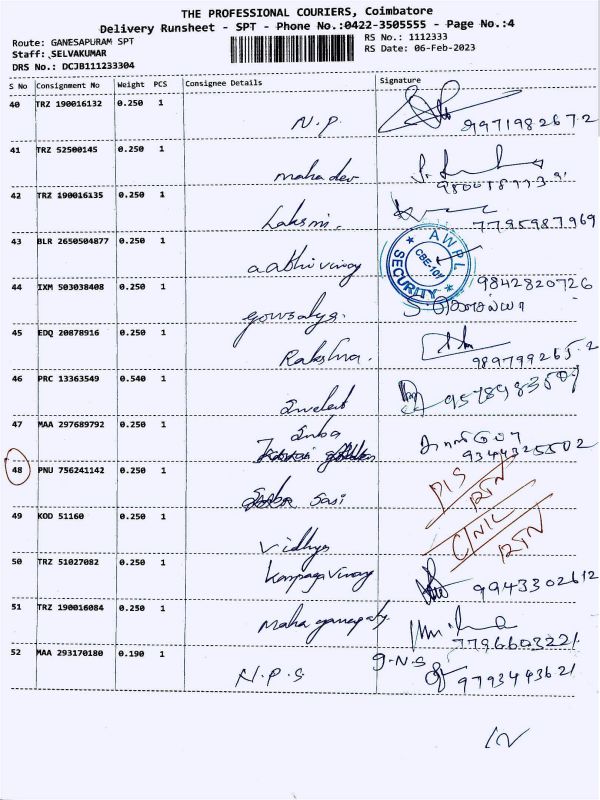 THE PROFESSIONAL COURIERS, Coimbatore
Delivery Runsheet - SPT - Phone No.:0422-3505555 - Page No.:4
Route: GANESAPURAM SPT
Staff: SELVAKUMAR
DRS No.: DCJB111233304
RS No.: 1112333
RS Date: 06-Feb-2023
S No Consignment No Weight PCS Consignee Details Signature
40 TRZ 190016132 0.250 1 N.P. 9971982672
41 TRZ 52500145 0.250 1 mahadev
42 TRZ 190016135 0.250 1 Laksmi. 7795987969
43 BLR 2650504877 0.250 1 aathivinay
AWPL SECURITY CBE-107
44 IXM 503038408 0.250 1 gowsalya. 9842820726
45 EDQ 20878916 0.250 1 Raksha. 989799265.2
46 PRC 13363549 0.540 1
47 MAA 297689792 0.250 1 Inba 9344325502
48 PNU 756241142 0.250 1 Sasi PIS RTN
49 KOD 51160 0.250 1 Vidhya C/NIC RTN
50 TRZ 51027082 0.250 1 Karpagavinay 9943302612
51 TRZ 190016084 0.250 1 Maha ganapaty 7796603221
52 MAA 293170180 0.190 1 N.P.S g-N-S 9793443621